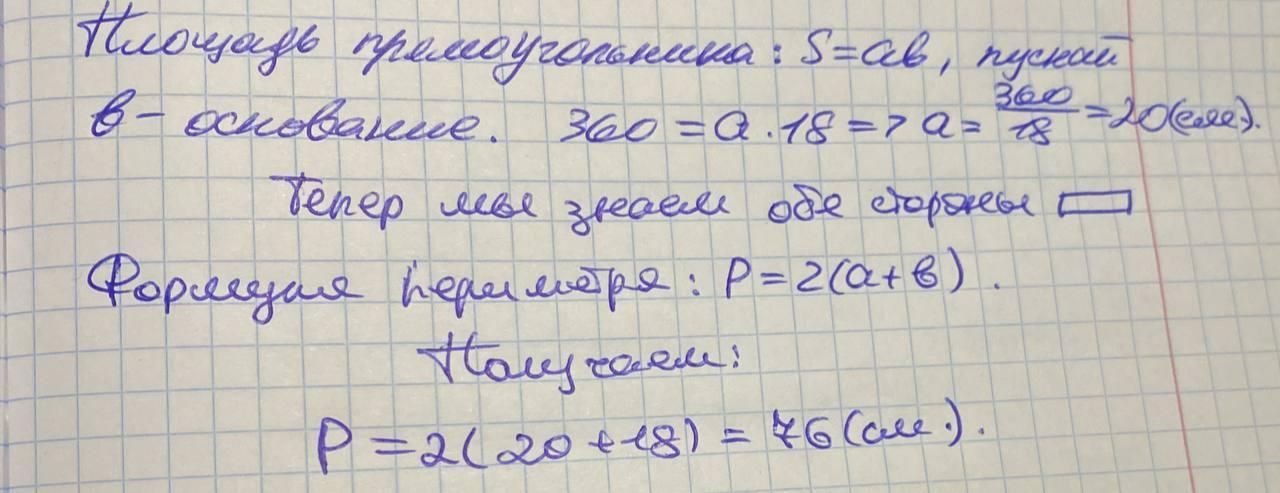 Площадь прямоугольника: S=ав, пускай
в - основание. 360 = а · 18 => а = 360/18 = 20(см).
Тепер мы знаем обе стороны ▭
Формула периметра: P = 2(а+в).
Получаем:
P = 2(20+18) = 76(см.).